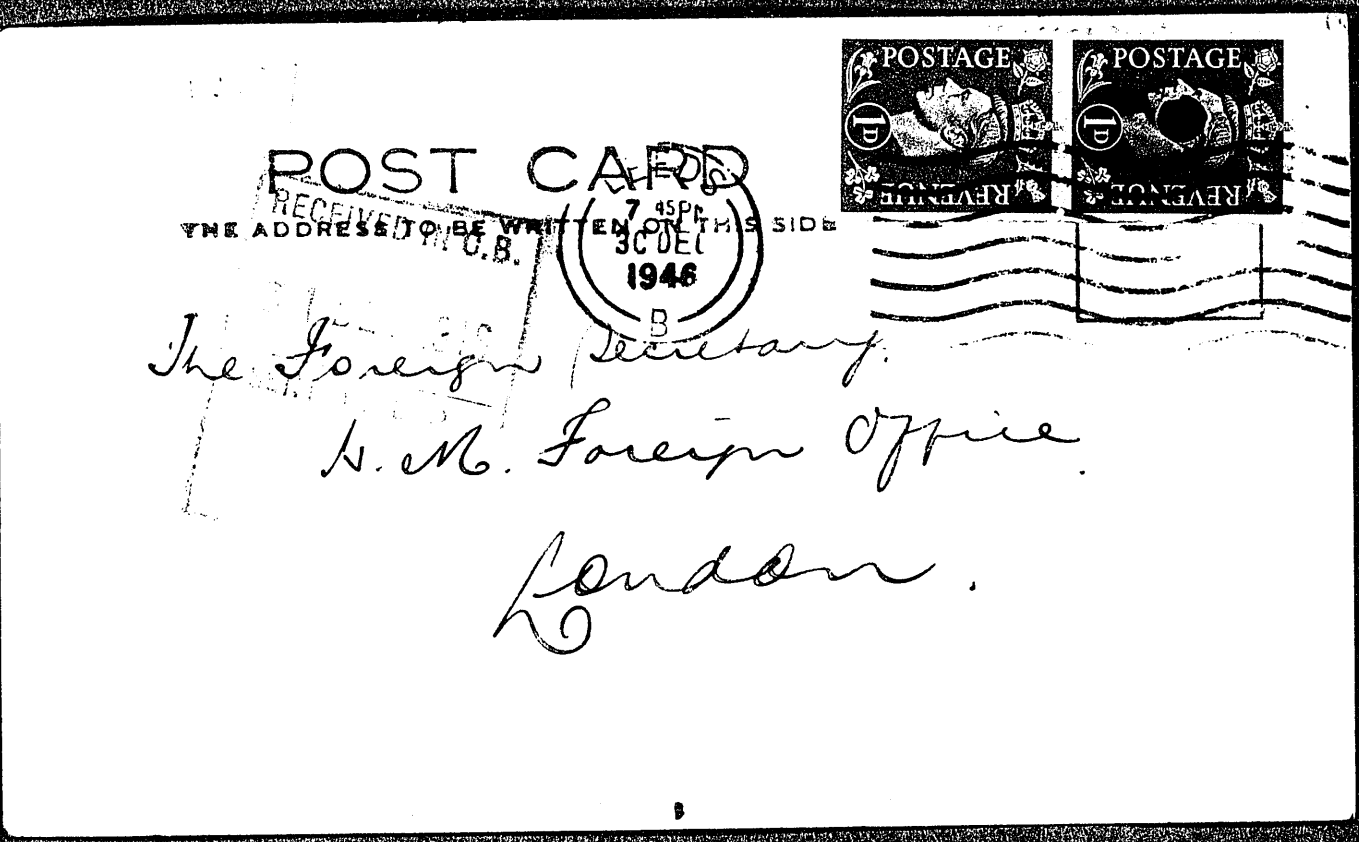 POSTAGE POSTAGE
1D 1D
REVENUE REVENUE
POST CARD
THE ADDRESS TO BE WRITTEN ON THIS SIDE
RECEIVED IN C.B.
LEEDS
7 45 PM
30 DEC
1946
B
The Foreign Secretary.
H. M. Foreign Office.
London.